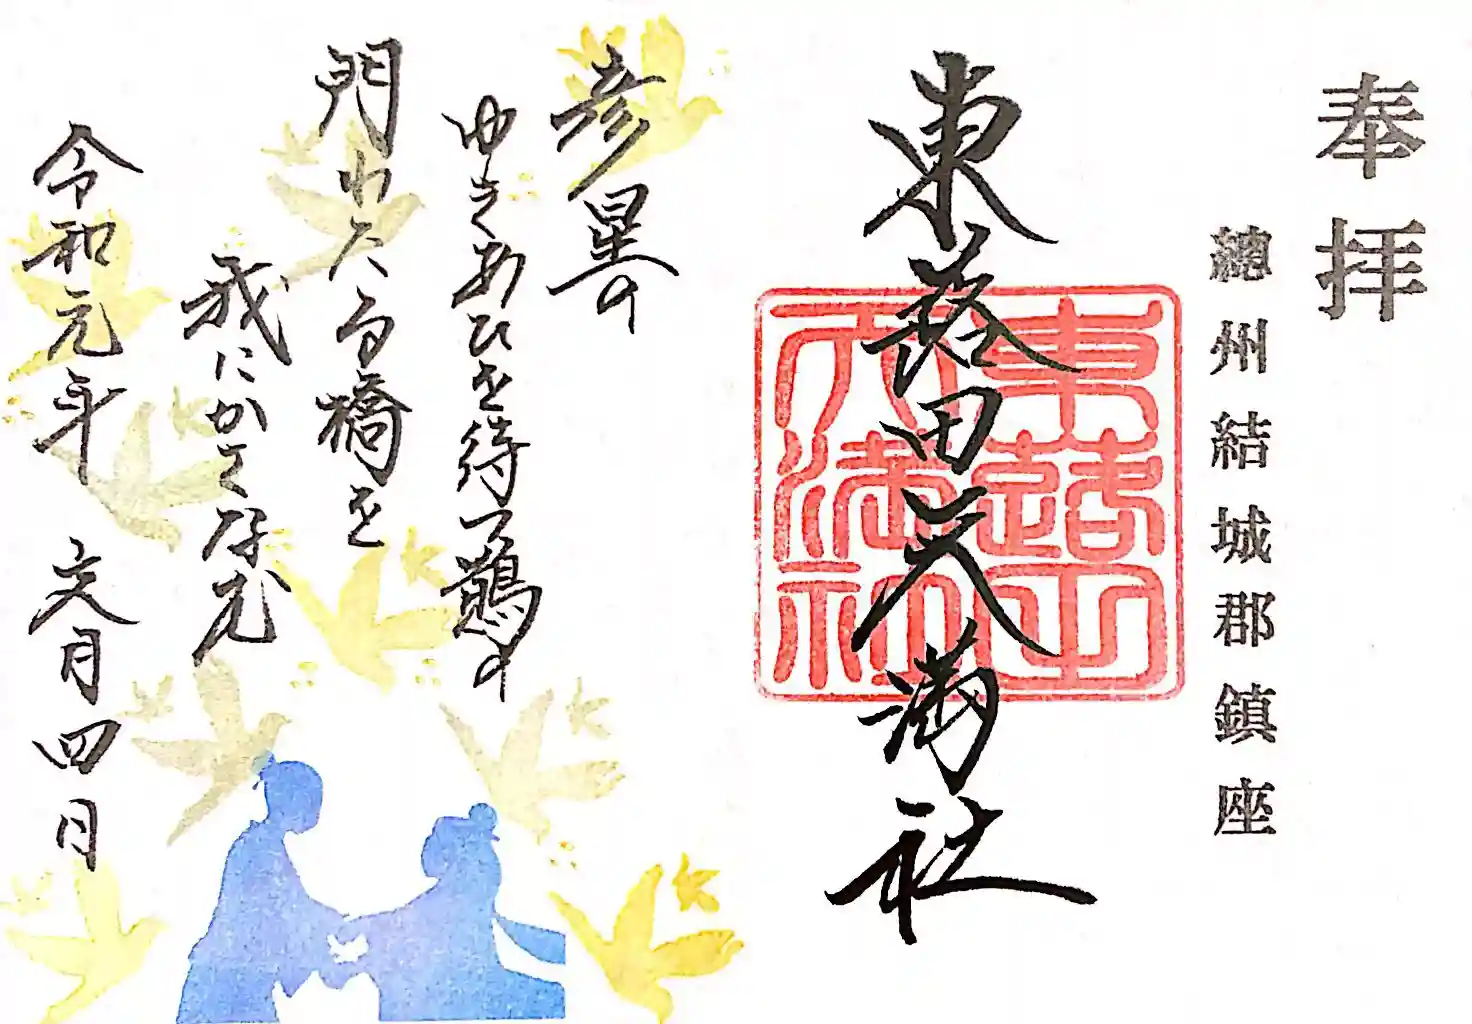 奉拝
總州結城郡鎮座
東蕗田天満社
東蕗田天満社
彦星の
ゆきあひを待つ鵲の
門わたる橋を
我にかさなむ
令和元年 文月四日